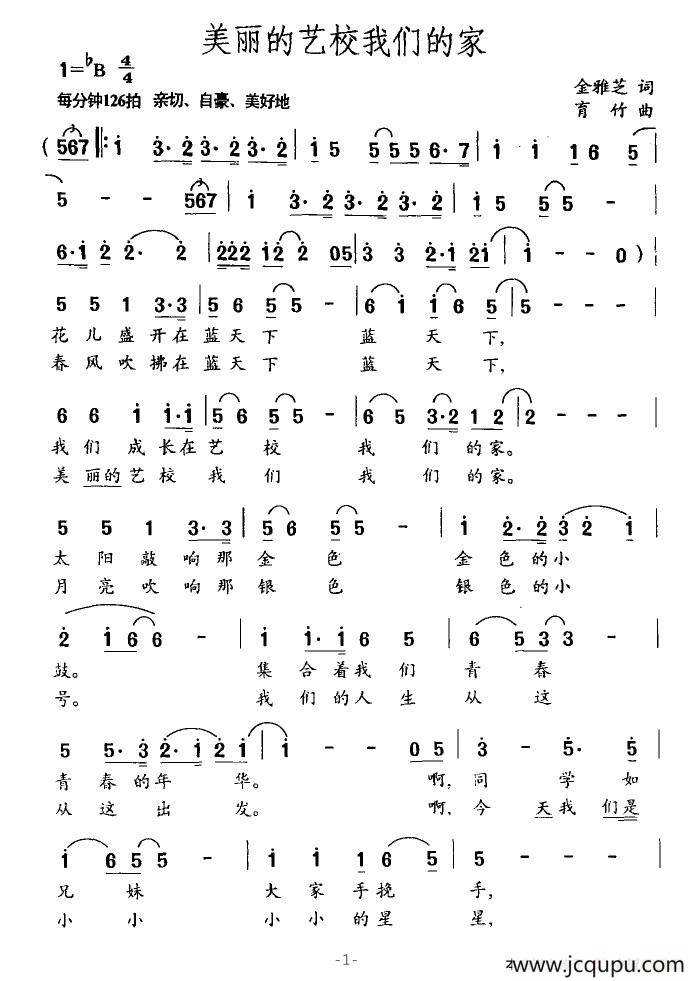 美丽的艺校我们的家
1=♭B 4/4
金雅芝 词
每分钟126拍 亲切、自豪、美好地
育 竹 曲
( 567 |: i 3·2 3·2 3·2 | i 5 5 5 5 6·7 | i i i 6 5 |
5 - - 567 | i 3·2 3·2 3·2 | i 5 5 5 - |
6·i 2 2· 2 | 222 i2 2 05 | 3 3 2·i 2i | i - - 0 ) |
5 5 1 3·3 | 5 6 5 5 - | 6 i i 6 5 | 5 - - |
花 儿 盛 开在 蓝天 下 蓝 天 下,
春 风 吹 拂在 蓝天 下 蓝 天 下,
6 6 i i·i | 5 6 5 5 - | 6 5 3·2 1 2 | 2 - - |
我 们 成 长在 艺 校 我 们 的 家。
美 丽的 艺 校 我 们 我 们 的 家。
5 5 1 3·3 | 5 6 5 5 - | i 2·2 3 2 i |
太 阳 敲 响那 金 色 金 色 的 小
月 亮 吹 响那 银 色 银 色 的 小
2 i 6 6 - | i i·i 6 5 | 6 5 3 3 - |
鼓。 集 合着 我 们 青 春
号。 我 们的 人 生 从 这
5 5·3 2·i 2 i | i - - 0 5 | 3 - 5· 5 |
青 春 的 年 华。 啊, 同 学 如
从 这 出 发。 啊, 今 天我 们是
i 6 5 5 - | i i 1 6 5 | 5 - - - |
兄 妹 大 家 手 挽 手,
小 小 小 小 的 星 星,
-1-
www.jcqupu.com